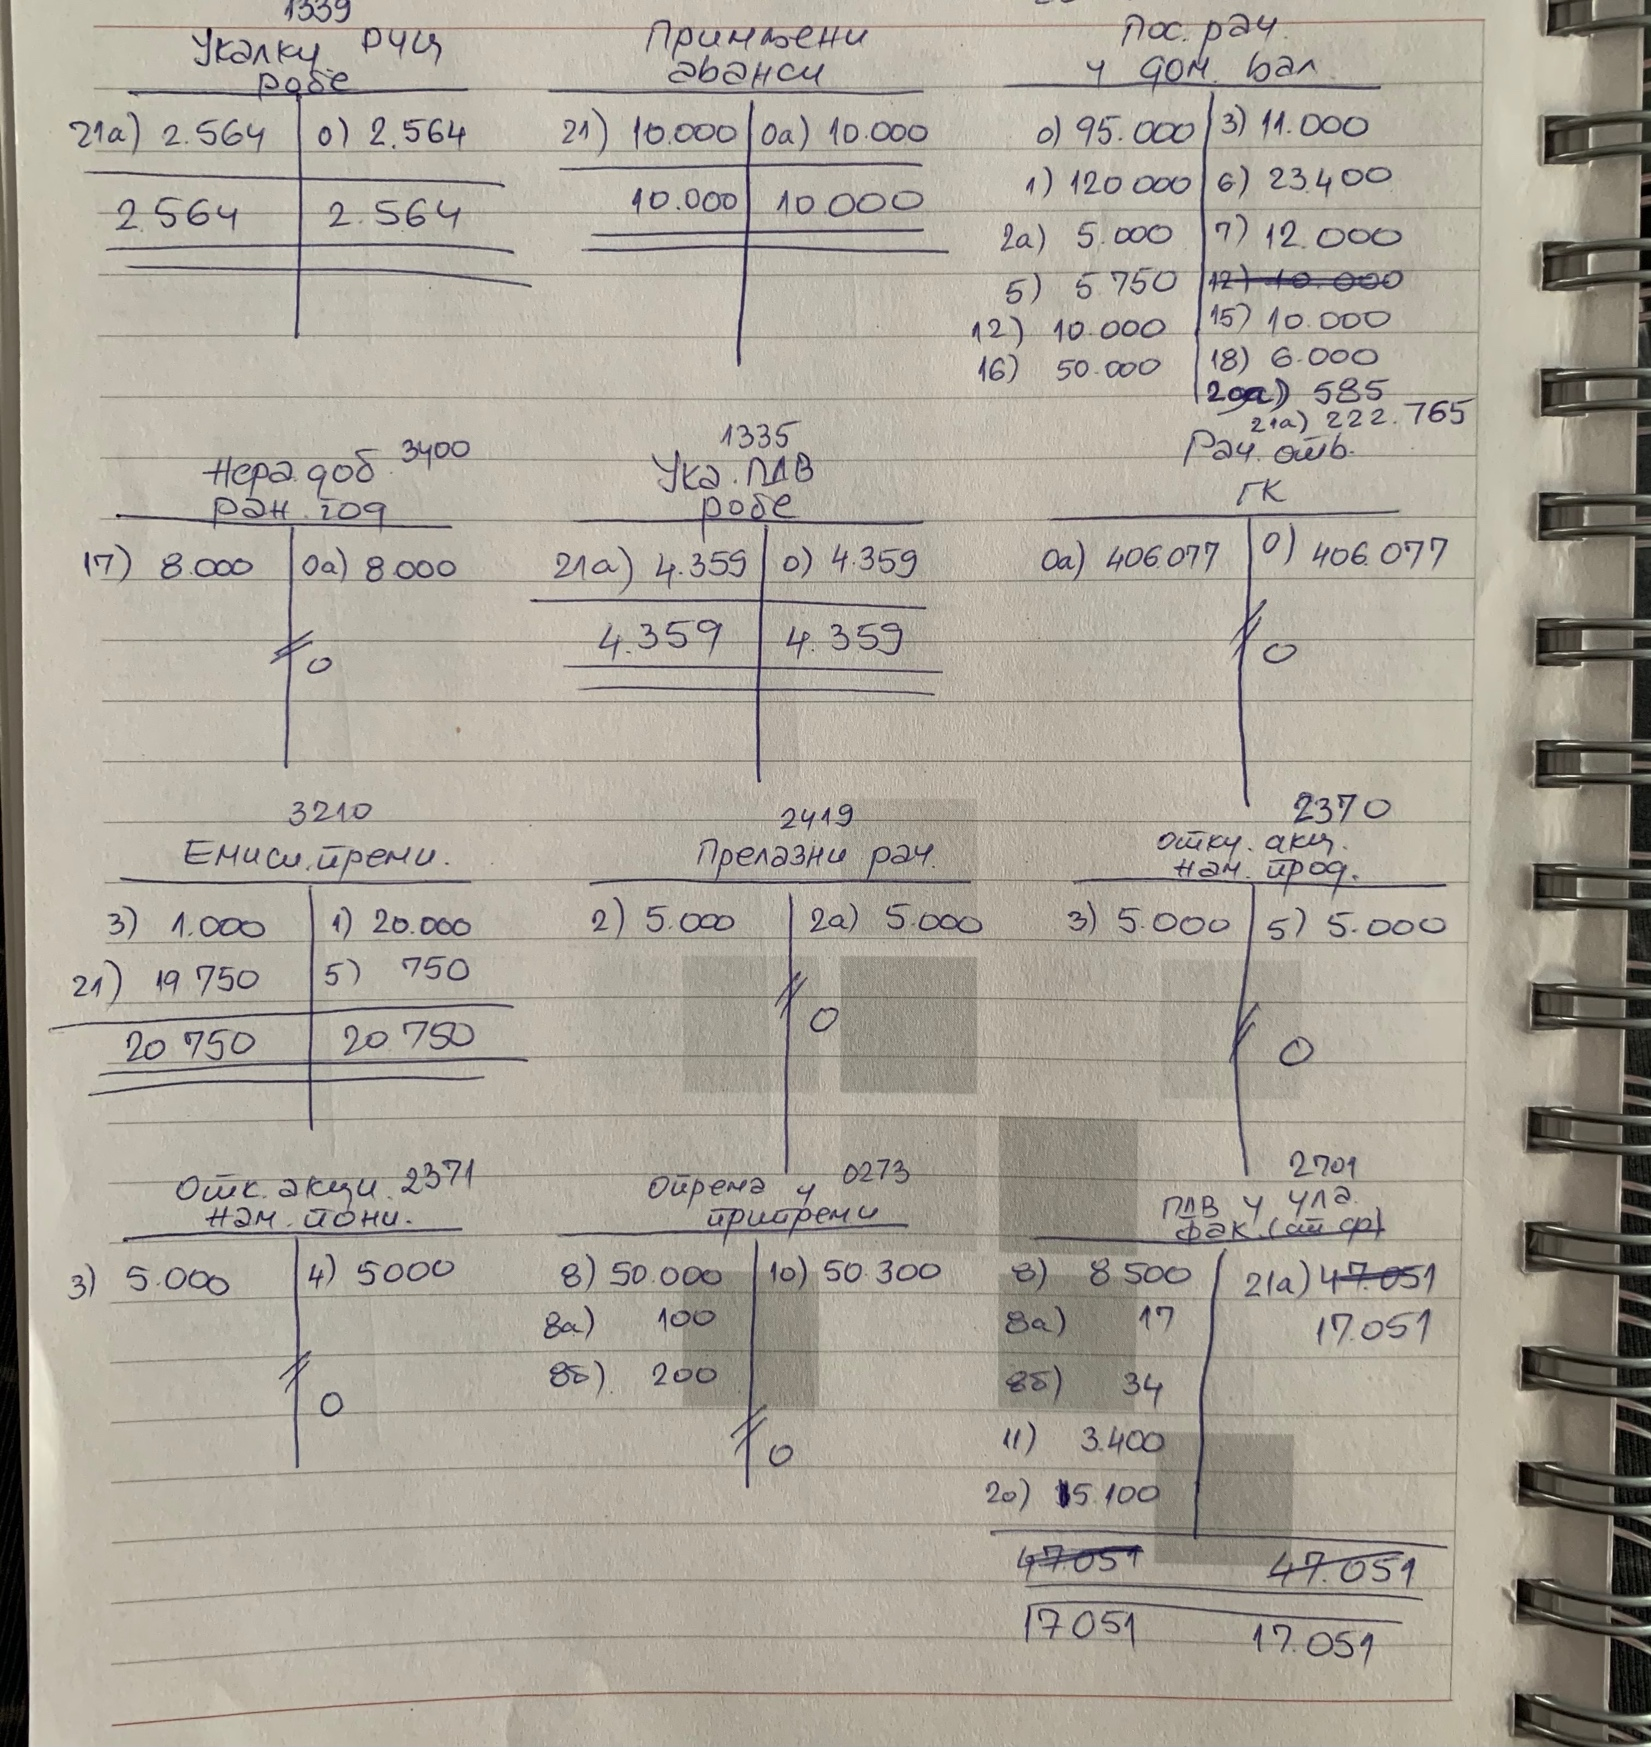 1339
Укалку РУЦ
робе
21а) 2.564 о) 2.564
2.564 2.564
Примљени
аванси
21) 10.000 0а) 10.000
10.000 10.000
Пос. рач.
у дом. вал.
о) 95.000 3) 11.000
1) 120 000 6) 23.400
2а) 5.000 7) 12.000
5) 5 750 12) 10.000
12) 10.000 15) 10.000
16) 50.000 18) 6.000
20а) 585
21а) 222.765
Нера. доб. 3400
ран. год
17) 8.000 0а) 8.000
0
1335
Ука. ПДВ
робе
21а) 4.359 о) 4.359
4.359 4.359
Рач. отв.
ГК
0а) 406.077 0) 406.077
0
3210
Емиси. преми.
3) 1.000 1) 20.000
21) 19 750 5) 750
20 750 20 750
2419
Прелазни рач.
2) 5.000 2а) 5.000
0
2370
отку. акц.
нам. прод.
3) 5.000 5) 5.000
0
Отк. акци. 2371
нам. пони.
3) 5.000 4) 5000
0
Опрема у 0273
припреми
8) 50.000 10) 50.300
8а) 100
8б) 200
0
2701
ПДВ у ула.
фак. (оп ст)
8) 8 500 21а) 47.051
8а) 17 17.051
8б) 34
11) 3.400
20) 5.100
47.051 47.051
17 051 17.051